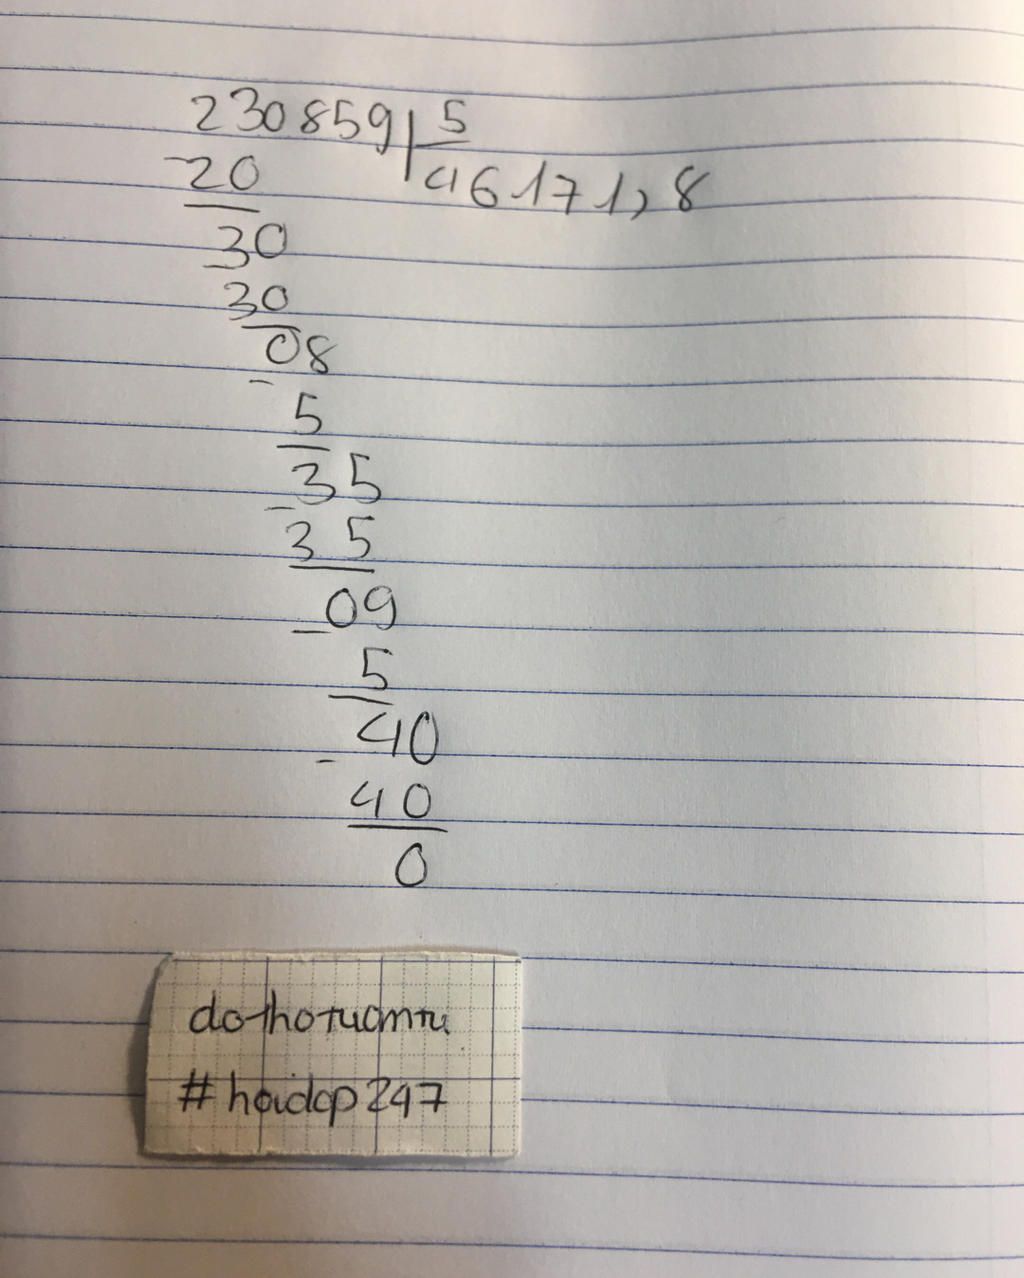 230859 5
- 20 46171,8
30
- 30
08
- 5
35
- 35
09
- 5
40
- 40
0
dothotuantu
#hoidap247